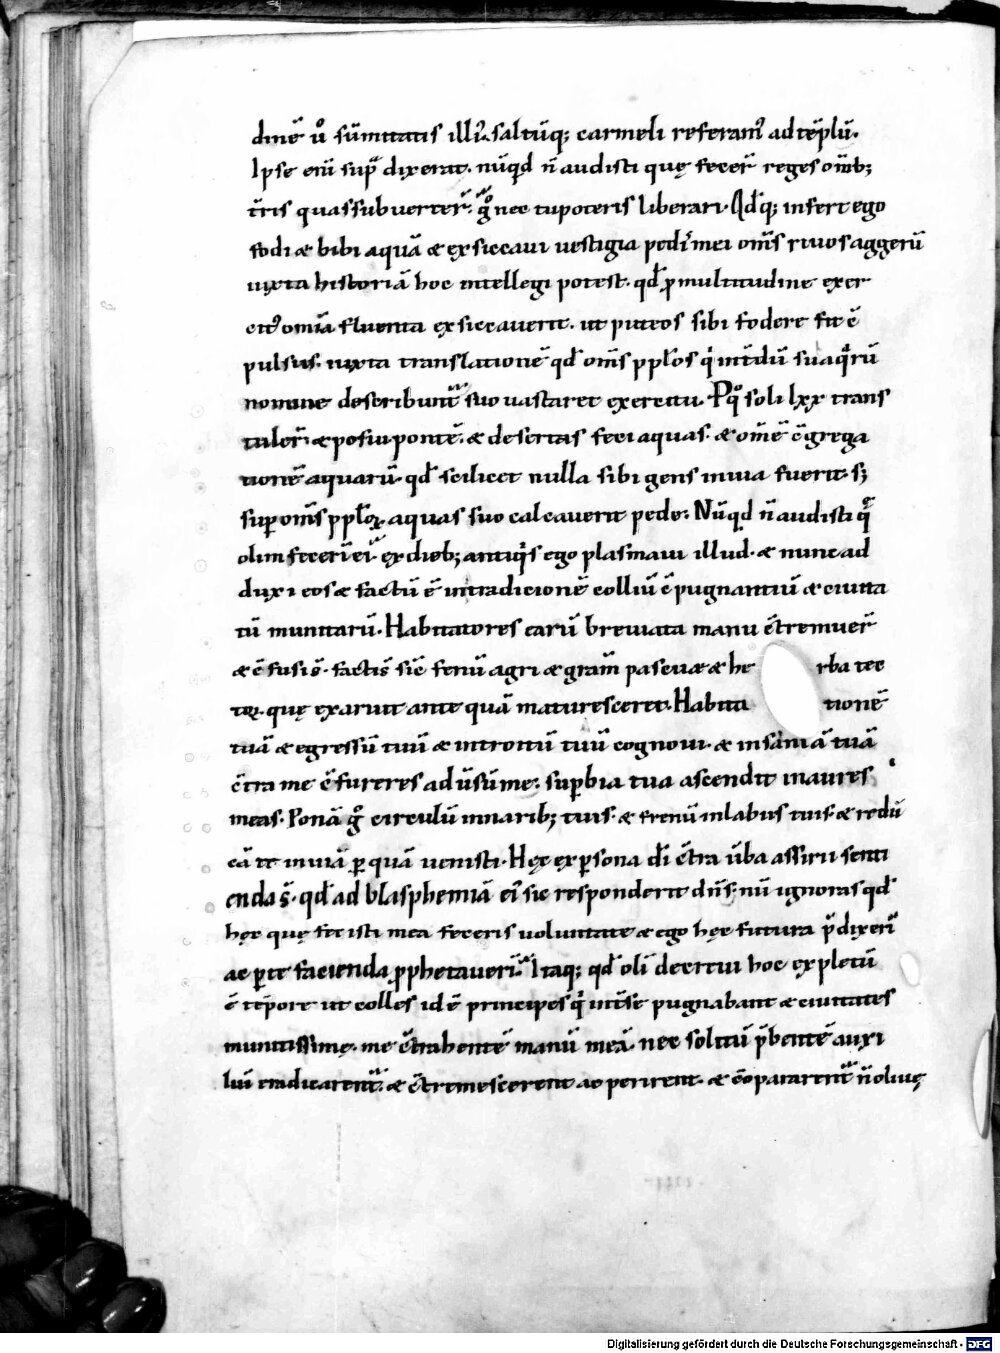 dinē ů sūmitatis illi᷒. saltūq; carmeli referam᷒ ad tēplū.
Ipse eni̅ sup̄ dixerat. nūqd n̄ audisti quę fecer̄ reges om̄ib;
tr̄is quas subverter̄. g̊ nec tu poteris liberari. Adq; infert ego
fodi æ bibi aquā æ exsiccavi vestigia pedū mei om̄s rivos aggerū
iuxta historiā hoc intellegi potest. qd̄ p multitudine exer
cit᷒ om̄ia fluenta exsiccaverit. ut puteos sibi fodere sit ē
pulsus. iuxta translationē qd̄ om̄s pplōs qⁱ int̄dū sub aqⁱrū
nomine describunt᷒ suo vastaret exercitu. P qͦ soli lxx trans
tuler̄ æ posui pontē. æ desertas feci aquas. æ om̄ē c̄grega
tionē aquarū. qd̄ scilicet nulla sibi gens invia fuerit. s;
sup om̄s pplōꝝ aquas suo calcaverit pede. Nūqd n̄ audisti q̄
olim fecerī ei. ex dieb; antiqⁱs ego plasmavi illud. æ nunc ad
duxi eos æ factū ē in tradicionē colliū c̄pugnantiū æ civita
tū munitarū. Habitatores earū breviata manu c̄tremuer̄
æ c̄fusi s̄. facti s̄ sic̄ fenū agri æ gram̄ pascuæ æ he rba tec
toꝝ. quę exaruit ante quā maturesceret. Habita tionē
tuā æ egressū tuū æ introitū tuū cognovi. æ insaniā tuā
c̄tra me c̄fureres adūsū me. supbia tua ascendit in aures
meas. Ponā g̊ circulū in narib; tuis. æ frenū in labiis tuis. æ redu
cā te in viā p quā venisti. Hęc ex psona dī c̄tra ūba assirii senti
enda s̄. qd̄ ad blasphemiā ei᷒ sic responderit dn̄s. nū ignoras qd̄
hęc quę fecisti mea feceris voluntate æ ego hęc futura p̄dixerī
ac p te facienda pphetaverī. Itaq; qd̄ oli̅ decrevi hoc expletū
ē tēpore ut colles id ē principes qⁱ int̄ se pugnabant æ civitates
munitissimę. me c̄trahente manū meā. nec solitū p̄bente auxi
liū eradicarent᷒. æ c̄tremescerent ac perirent. æ cōpararent᷒ n̄ olivę
Digitalisierung gefördert durch die Deutsche Forschungsgemeinschaft - DFG